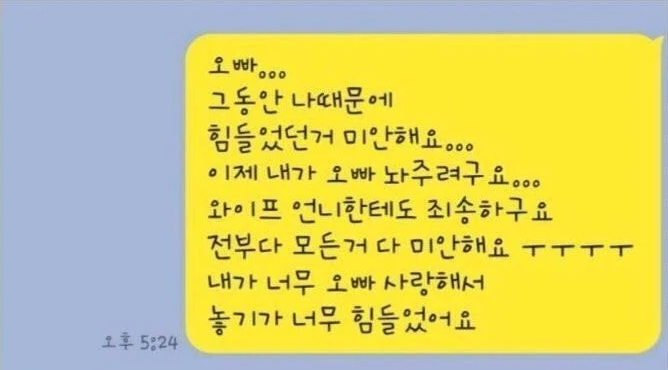 오빠...
그동안 나때문에
힘들었던거 미안해요...
이제 내가 오빠 놔주려구요...
와이프 언니한테도 죄송하구요
전부다 모든거 다 미안해요 ㅜㅜㅜㅜ
내가 너무 오빠 사랑해서
놓기가 너무 힘들었어요
오후 5:24